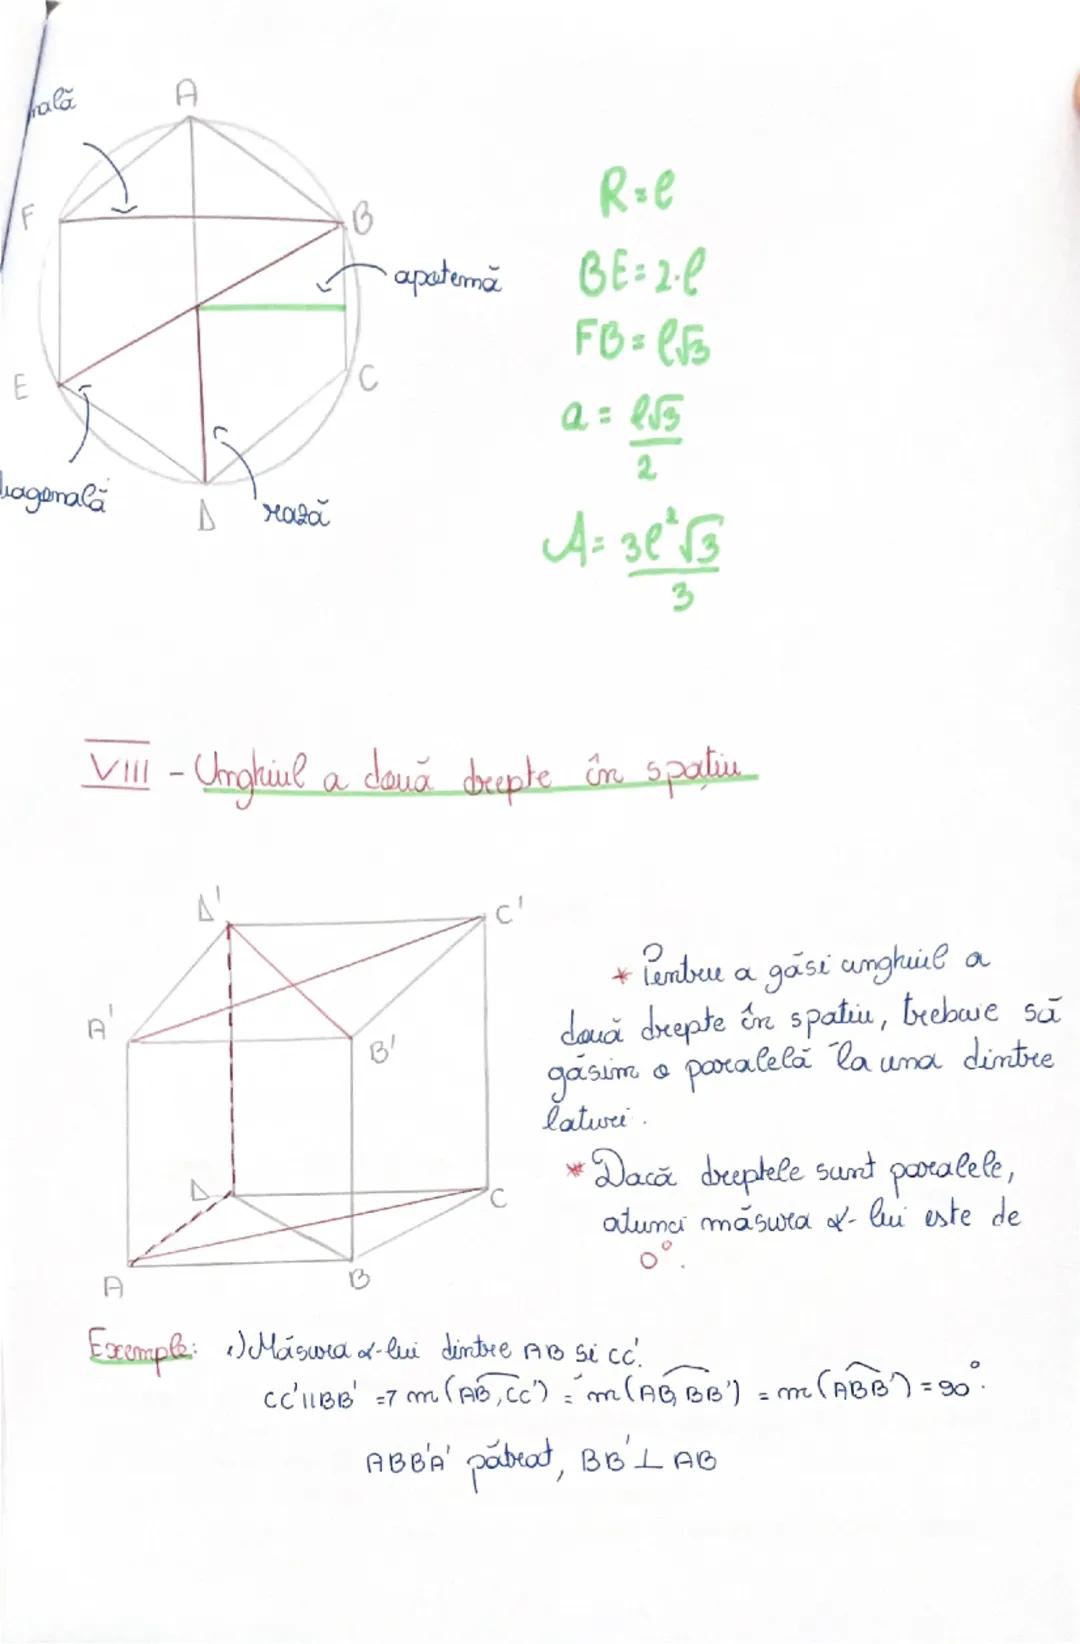 A
F
B
apotemă
E
C
D
rază
R=l
BE=2·l
FB=l√3
a=l√3/2
A=3l²√3/3
VIII - Unghiul a două drepte în spațiu
D'
C'
A'
B'
D
C
A
B
* Pentru a găsi unghiul a
două drepte în spatiu, trebuie să
găsim o paralelă la una dintre
laturi.
* Dacă dreptele sunt paralele,
atunci măsura ∢-lui este de
0°.
Exemple: 1) Măsura ∢-lui dintre AB si CC'.
CC'||BB' => m(AB,CC') = m(AB,BB') = m(ABB') = 90°.
ABB'A' pătrat, BB'⊥AB